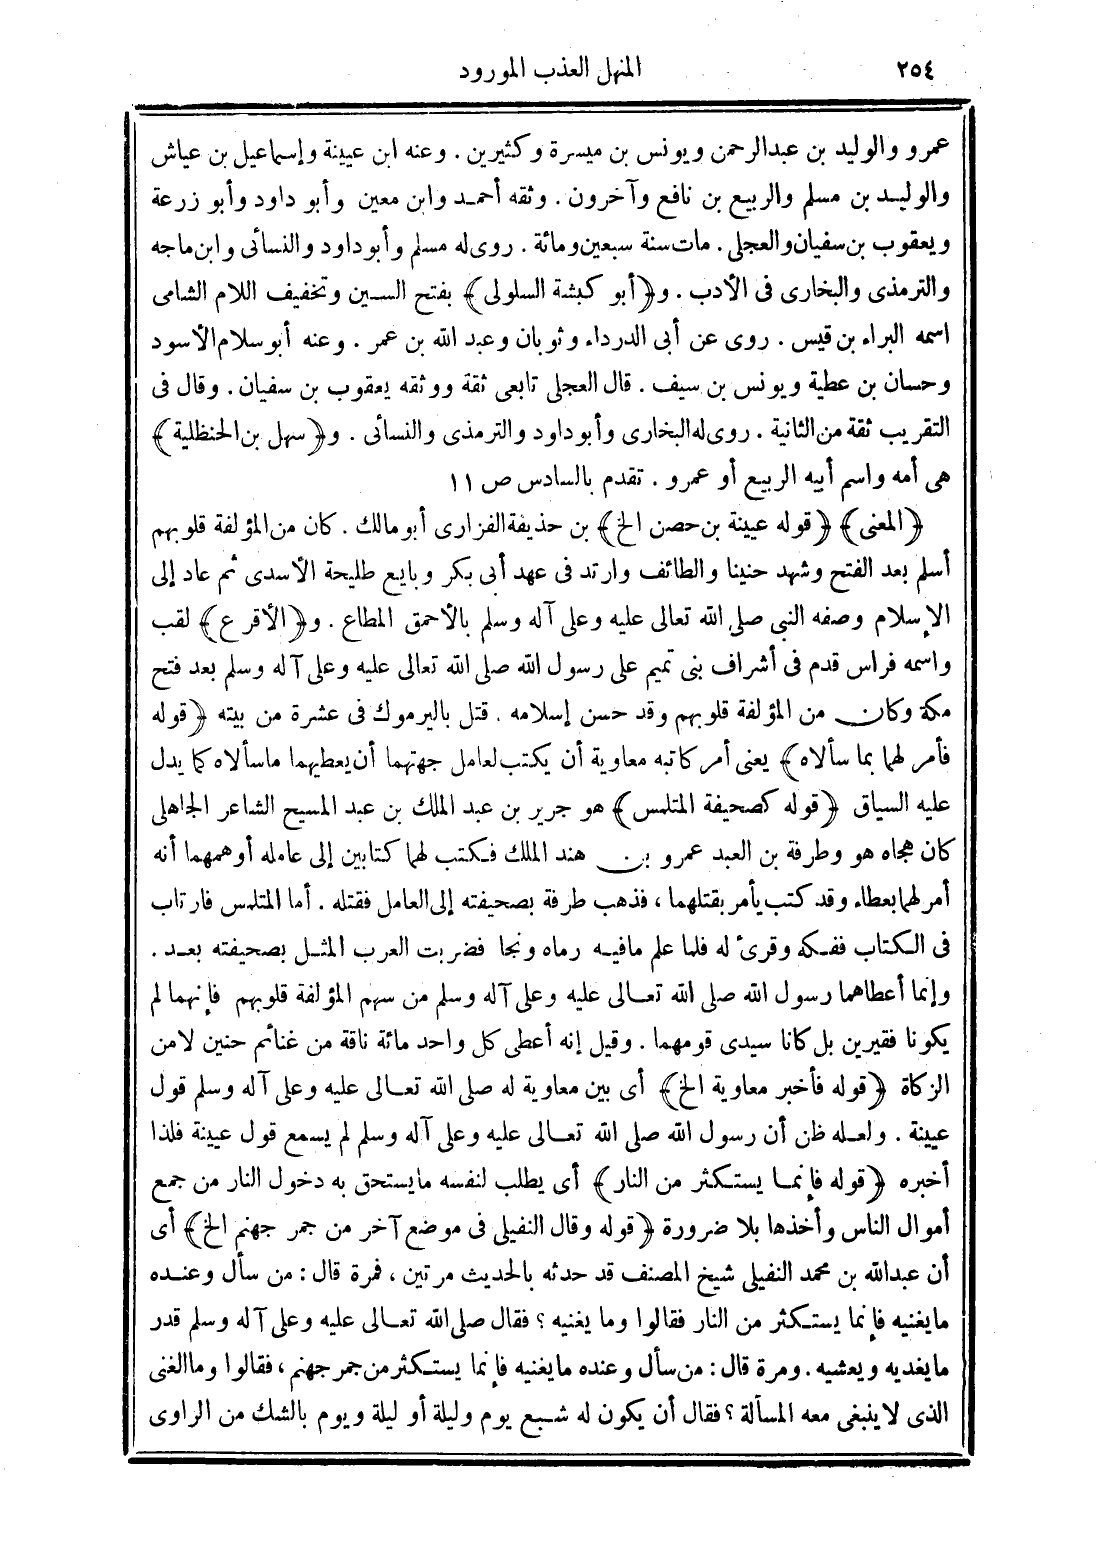 ٢٥٤
المنهل العذب المورود
عمرو والوليد بن عبدالرحمن ويونس بن ميسرة وكثيرين . وعنه ابن عيينة وإسماعيل بن عياش
والوليد بن مسلم والربيع بن نافع وآخرون . وثقه أحمد وابن معين وأبو داود وأبو زرعة
ويعقوب بن سفيان والعجلى . مات سنة سبعين ومائة . روى له مسلم وأبو داود والنسائى وابن ماجه
والترمذى والبخارى فى الأدب . و﴿أبو كبشة السلولى﴾ بفتح السين وتخفيف اللام الشامى
اسمه البراء بن قيس . روى عن أبى الدرداء وثوبان وعبد الله بن عمر . وعنه أبو سلام الأسود
وحسان بن عطية ويونس بن سيف . قال العجلى تابعى ثقة ووثقه يعقوب بن سفيان . وقال فى
التقريب ثقة من الثانية . روى له البخارى وأبو داود والترمذى والنسائى . و﴿سهل بن الحنظلية﴾
هى أمه واسم أبيه الربيع أو عمرو . تقدم بالسادس ص ١١
﴿المعنى﴾ ﴿قوله عيينة بن حصن الخ﴾ بن حذيفة الفزارى أبو مالك . كان من المؤلفة قلوبهم
أسلم بعد الفتح وشهد حنينا والطائف وارتد فى عهد أبى بكر وبايع طليحة الأسدى ثم عاد إلى
الإسلام وصفه النبى صلى الله تعالى عليه وعلى آله وسلم بالأحمق المطاع . و﴿الأقرع﴾ لقب
واسمه فراس قدم فى أشراف بنى تميم على رسول الله صلى الله تعالى عليه وعلى آله وسلم بعد فتح
مكة وكان من المؤلفة قلوبهم وقد حسن إسلامه . قتل باليرموك فى عشرة من بيته ﴿قوله
فأمر لهما بما سألاه﴾ يعنى أمر كاتبه معاوية أن يكتب لعامل جهتهما أن يعطيهما ماسألاه كما يدل
عليه السياق ﴿قوله كصحيفة المتلمس﴾ هو جرير بن عبد الملك بن عبد المسيح الشاعر الجاهلى
كان هجاه هو وطرفة بن العبد عمرو بن هند الملك فكتب لهما كتابين إلى عامله أوهمهما أنه
أمر لهما بعطاء وقد كتب يأمر بقتلهما ، فذهب طرفة بصحيفته إلى العامل فقتله . أما المتلمس فارتاب
فى الكتاب ففكه وقرئ له فلما علم مافيه رماه ونجا فضربت العرب المثل بصحيفته بعد .
وإنما أعطاهما رسول الله صلى الله تعالى عليه وعلى آله وسلم من سهم المؤلفة قلوبهم فإنهما لم
يكونا فقيرين بل كانا سيدى قومهما . وقيل إنه أعطى كل واحد مائة ناقة من غنائم حنين لامن
الزكاة ﴿قوله فأخبر معاوية الخ﴾ أى بين معاوية له صلى الله تعالى عليه وعلى آله وسلم قول
عيينة . ولعله ظن أن رسول الله صلى الله تعالى عليه وعلى آله وسلم لم يسمع قول عيينة فلذا
أخبره ﴿قوله فإنما يستكثر من النار﴾ أى يطلب لنفسه مايستحق به دخول النار من جمع
أموال الناس وأخذها بلا ضرورة ﴿قوله وقال النفيلى فى موضع آخر من جمر جهنم الخ﴾ أى
أن عبدالله بن محمد النفيلى شيخ المصنف قد حدثه بالحديث مرتين ، فمرة قال : من سأل وعنده
مايغنيه فإنما يستكثر من النار فقالوا وما يغنيه ؟ فقال صلى الله تعالى عليه وعلى آله وسلم قدر
مايغديه ويعشيه . ومرة قال : من سأل وعنده مايغنيه فإنما يستكثر من جمر جهنم ، فقالوا وما الغنى
الذى لاينبغى معه المسألة ؟ فقال أن يكون له شبع يوم وليلة أو ليلة ويوم بالشك من الراوى